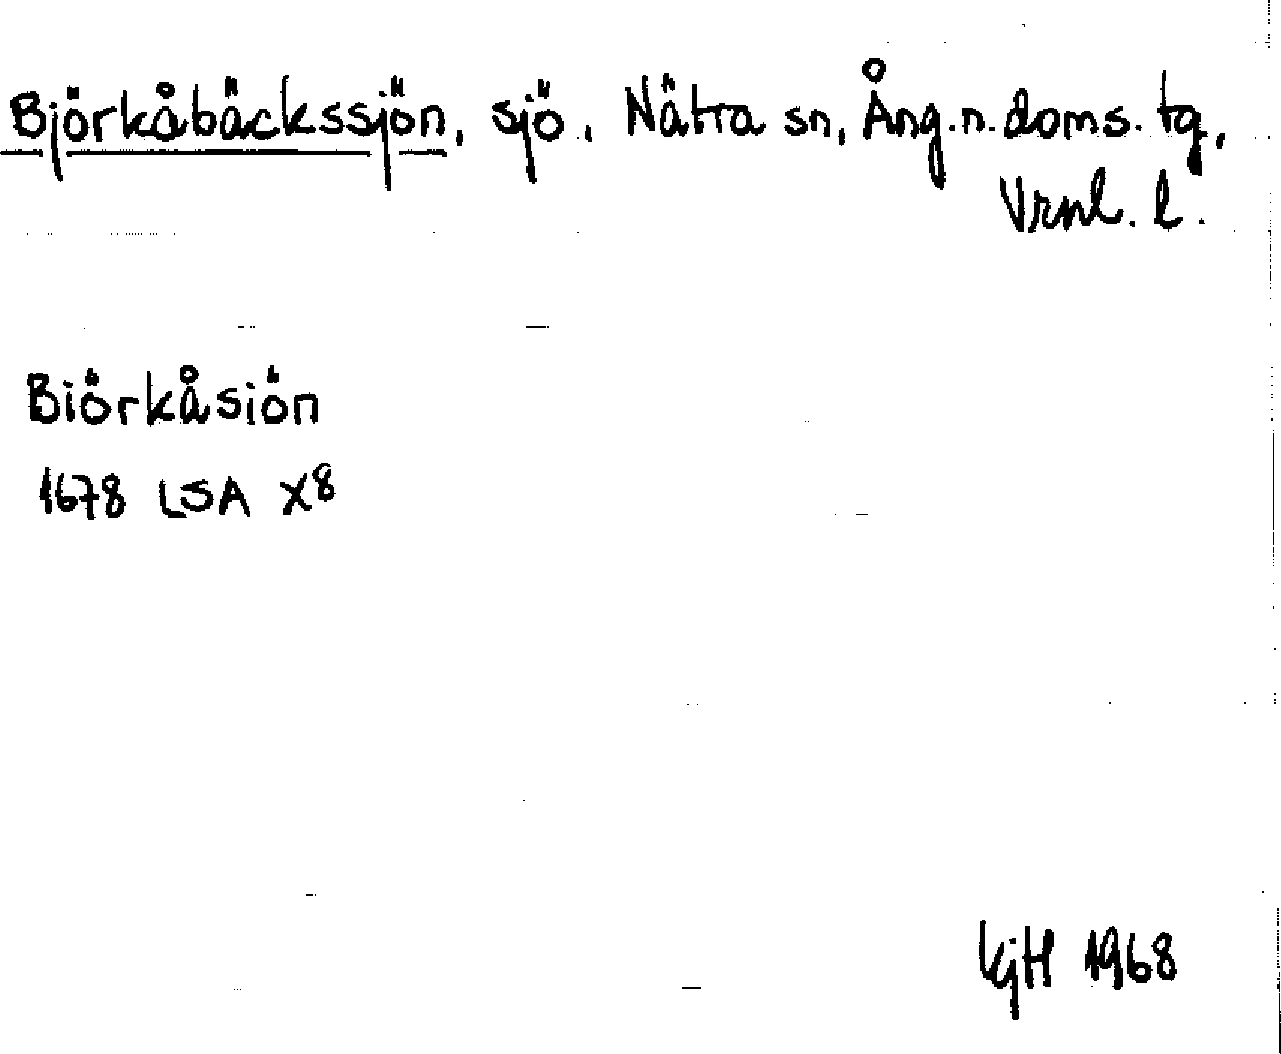 Björkåbäckssjön, sjö, Nätra sn, Ång.n.doms.tg,
Vrnl. l.
Biörkåsiön
1678 LSA X8
KjH 1968